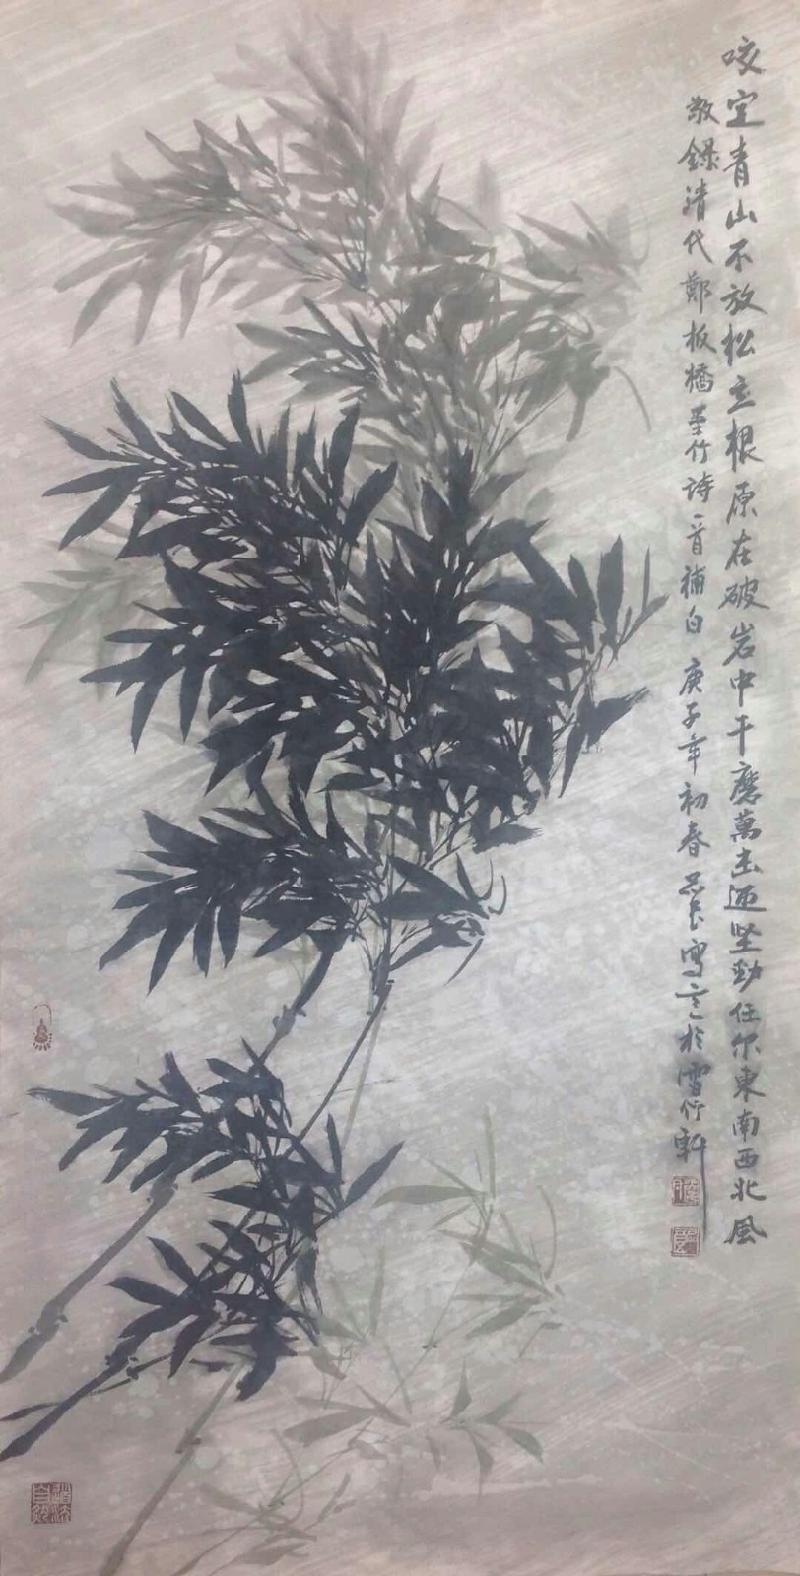 咬定青山不放松立根原在破岩中千磨萬击还坚劲任尔東南西北風
敬録清代鄭板橋竹詩一首補白 庚子年初春 寫意於雪竹軒
道法自然